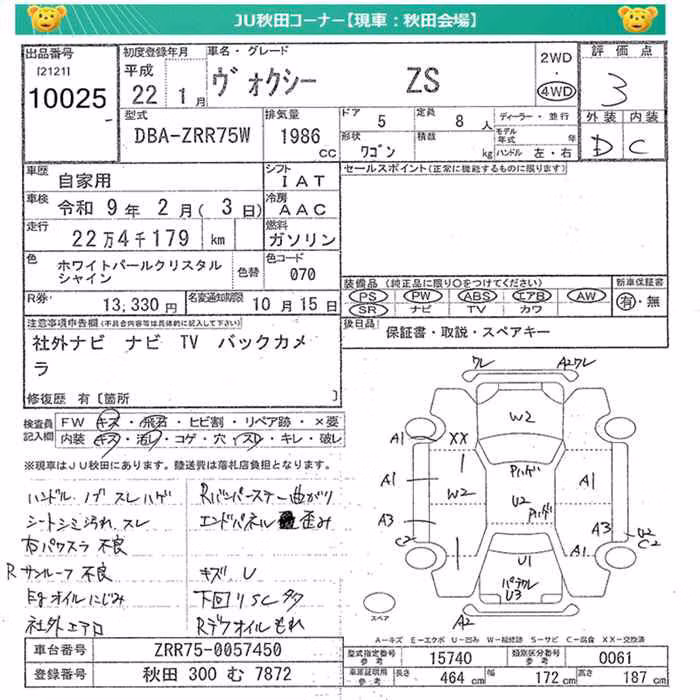 JU秋田コーナー【現車：秋田会場】
出品番号
[2121]
10025
初度登録年月
平成
22 1 月
車名・グレード
ヴォクシー ZS
2WD
・
4WD
評価点
3
外装 内装
D C
型式
DBA-ZRR75W
排気量
1986
CC
ドア
5
定員
8 人
形状
ワゴン
積載
kg
ディーラー・並行
モデル年式 年
ハンドル 左・右
車歴
自家用
シフト
IAT
車検
令和 9 年 2 月( 3 日)
冷房
AAC
走行
22万4千179 km
燃料
ガソリン
色
ホワイトパールクリスタル
シャイン
色替
色コード
070
R券
13,330円
名変通知期限
10 月 15 日
セールスポイント(正常に機能するものに限ります)
装備品 (純正品に限り○をつけてください)
PS PW ABS エアB AW
SR ナビ TV カワ
新車保証書
有・無
後日品
保証書・取説・スペアキー
注意事項申告欄(不具合内容等は具体的に記入して下さい)
社外ナビ ナビ TV バックカメ
ラ
修復歴 有〔箇所 〕
検査員
記入欄
FW キズ・飛石・ヒビ割・リペア跡・×要
内装 キズ・汚レ・コゲ・穴・スレ・キレ・破レ
※現車はJU秋田にあります。陸送費は落札店負担となります。
ハンドル.ノブ スレハゲ
シートシミ汚れ.スレ
右パワスラ 不良
R サンルーフ 不良
Egオイルにじみ
社外エアロ
Rバンパーステー曲がり
エンドパネル歪み
キズ、U
下回りSC多
Rデフオイルもれ
ワレ
A2ワレ
W2
A1
XX
A1
W2
A1
A3
C2
U2
A1
A3
U2
C2
A1
U1
U3
A2
スペア
A-キズ E-エクボ U-凹み W-補修跡 S-サビ C-腐食 XX-交換済
車台番号
ZRR75-0057450
登録番号
秋田 300 む 7872
型式指定番号
参考
15740
類別区分番号
参考
0061
車庫証明用
参考
長さ
464 cm
幅
172 cm
高さ
187 cm